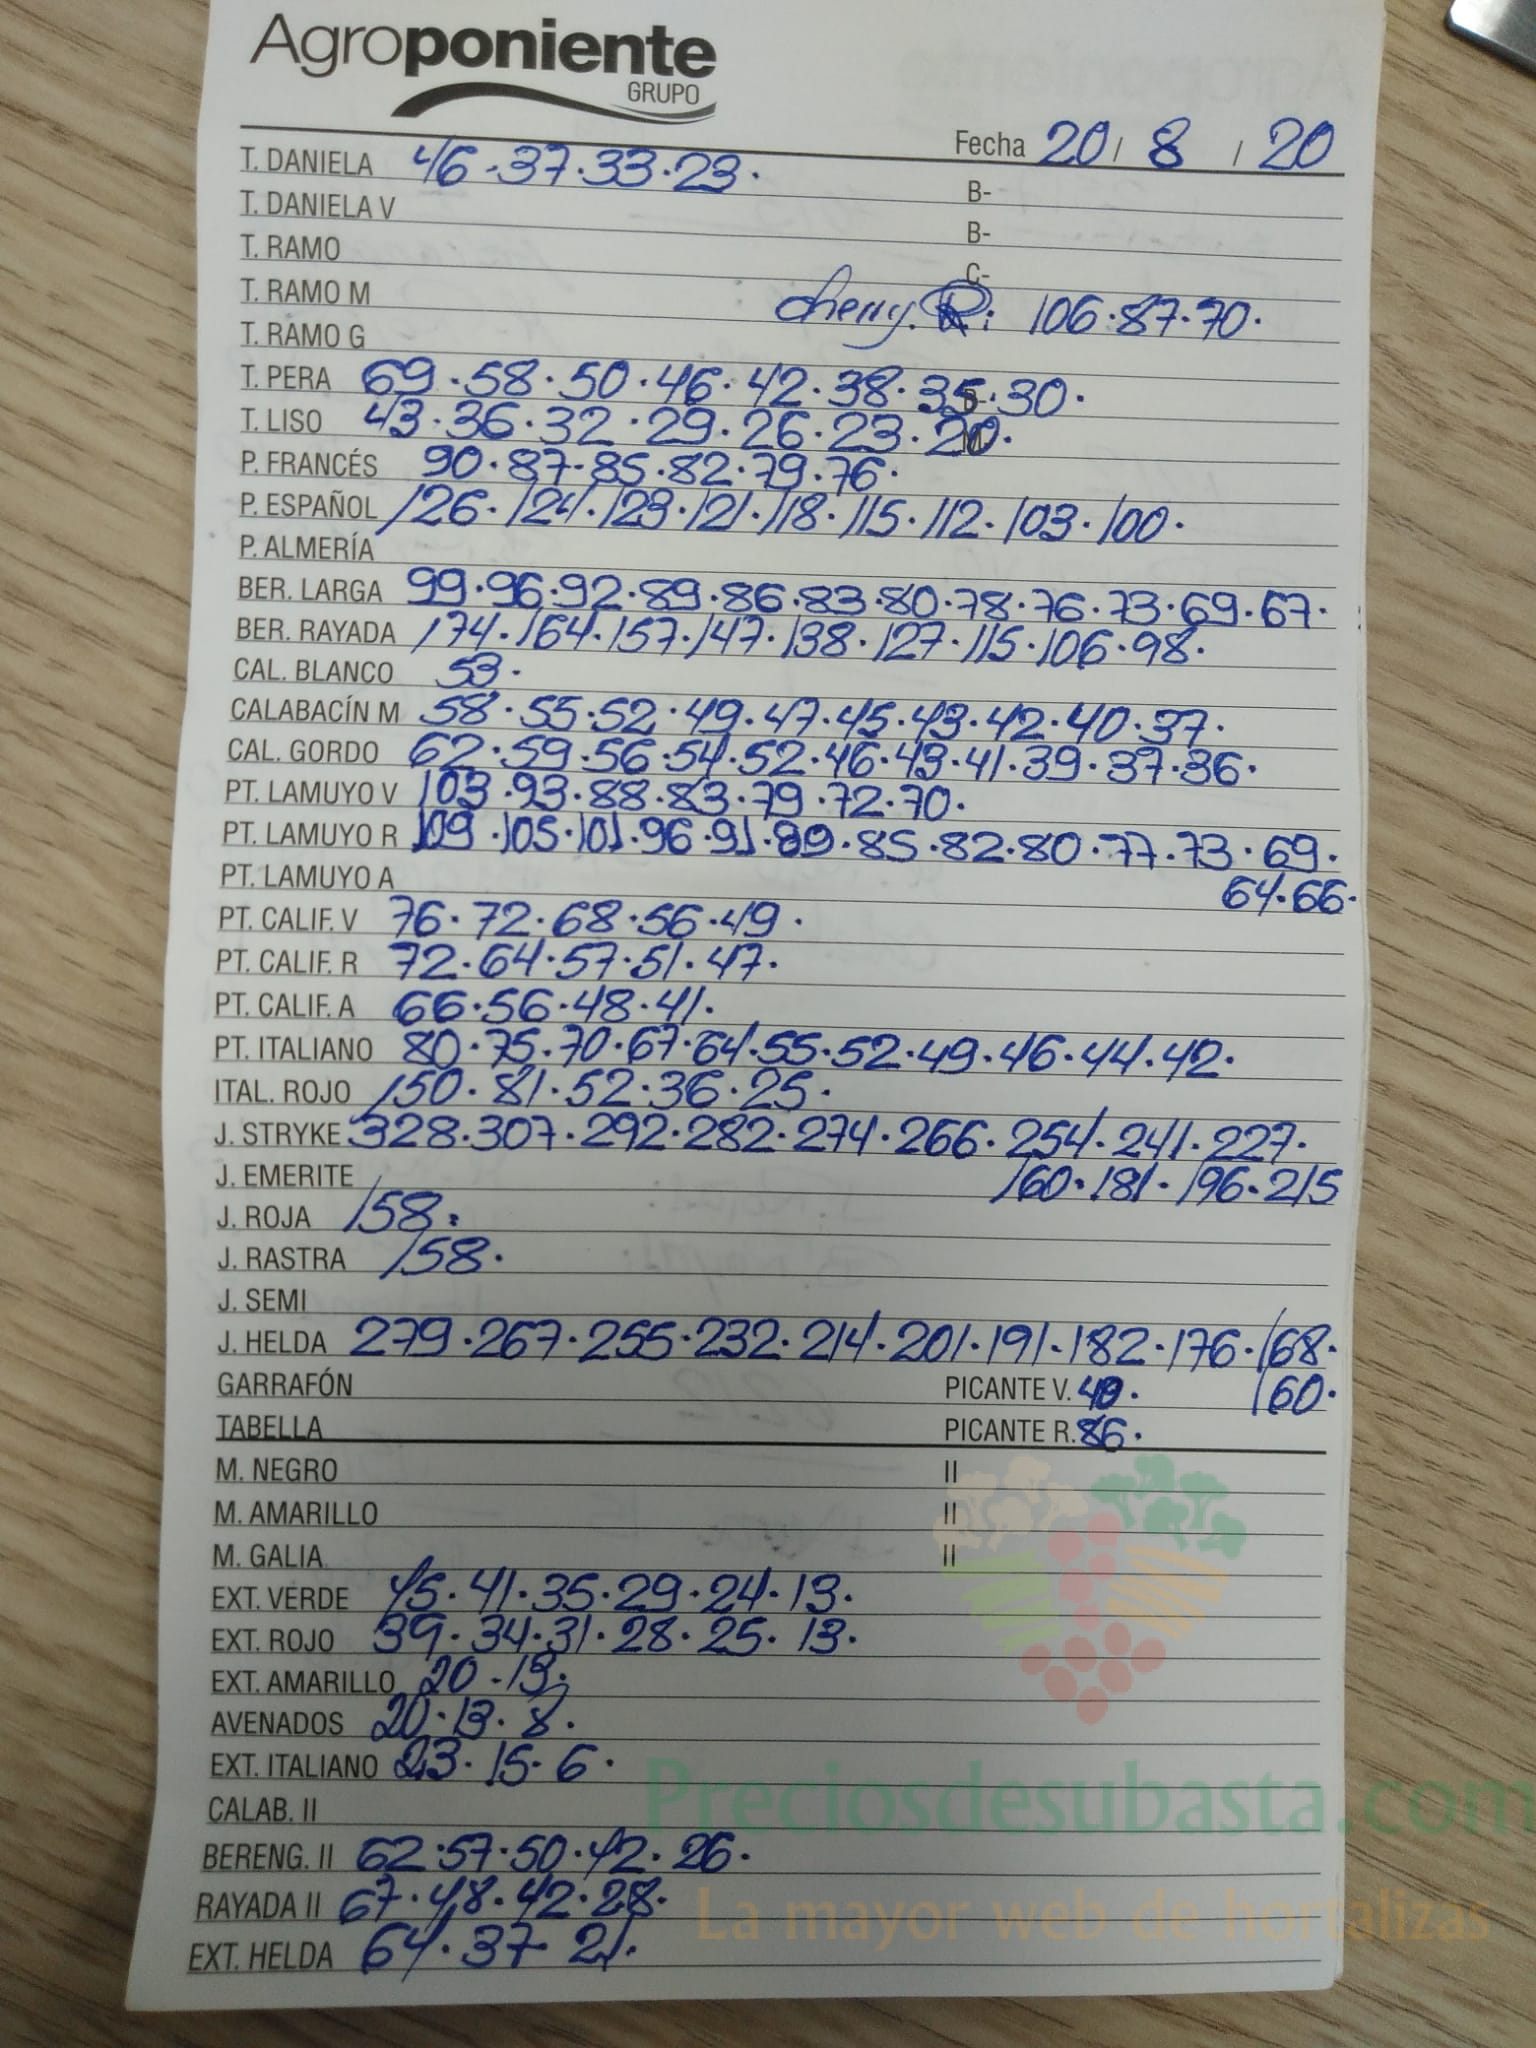 Agroponiente
GRUPO
Fecha 20 / 8 / 20
T. DANIELA 46 · 37 · 33 · 23 ·
B-
T. DANIELA V
B-
T. RAMO
C-
T. RAMO M
cherry. R: 106 · 87 · 70 ·
T. RAMO G
T. PERA 69 · 58 · 50 · 46 · 42 · 38 · 35 · 30 ·
T. LISO 43 · 36 · 32 · 29 · 26 · 23 · 20 ·
P. FRANCÉS 90 · 87 · 85 · 82 · 79 · 76 ·
P. ESPAÑOL 126 · 124 · 123 · 121 · 118 · 115 · 112 · 103 · 100 ·
P. ALMERÍA
BER. LARGA 99 · 96 · 92 · 89 · 86 · 83 · 80 · 78 · 76 · 73 · 69 · 67 ·
BER. RAYADA 174 · 164 · 157 · 147 · 138 · 127 · 115 · 106 · 98 ·
CAL. BLANCO 53 ·
CALABACÍN M 58 · 55 · 52 · 49 · 47 · 45 · 43 · 42 · 40 · 37 ·
CAL. GORDO 62 · 59 · 56 · 54 · 52 · 46 · 43 · 41 · 39 · 37 · 36 ·
PT. LAMUYO V 103 · 93 · 88 · 83 · 79 · 72 · 70 ·
PT. LAMUYO R 109 · 105 · 101 · 96 · 91 · 89 · 85 · 82 · 80 · 77 · 73 · 69 ·
PT. LAMUYO A 64 · 66 ·
PT. CALIF. V 76 · 72 · 68 · 56 · 49 ·
PT. CALIF. R 72 · 64 · 57 · 51 · 47 ·
PT. CALIF. A 66 · 56 · 48 · 41 ·
PT. ITALIANO 80 · 75 · 70 · 67 · 64 · 55 · 52 · 49 · 46 · 44 · 42 ·
ITAL. ROJO 150 · 81 · 52 · 36 · 25 ·
J. STRYKE 328 · 307 · 292 · 282 · 274 · 266 · 254 · 241 · 227 ·
J. EMERITE 160 · 181 · 196 · 215
J. ROJA 158 ·
J. RASTRA 158 ·
J. SEMI
J. HELDA 279 · 267 · 255 · 232 · 214 · 201 · 191 · 182 · 176 · 168 ·
GARRAFÓN PICANTE V. 40 · 160 ·
TABELLA PICANTE R. 86 ·
M. NEGRO II
M. AMARILLO II
M. GALIA II
EXT. VERDE 45 · 41 · 35 · 29 · 24 · 13 ·
EXT. ROJO 39 · 34 · 31 · 28 · 25 · 13 ·
EXT. AMARILLO 20 · 13 ·
AVENADOS 20 · 13 · 8 ·
EXT. ITALIANO 23 · 15 · 6 ·
Preciosdesubasta.com
CALAB. II
BERENG. II 62 · 57 · 50 · 42 · 26 ·
RAYADA II 67 · 48 · 42 · 28 ·
La mayor web de hortalizas
EXT. HELDA 64 · 37 · 21 ·